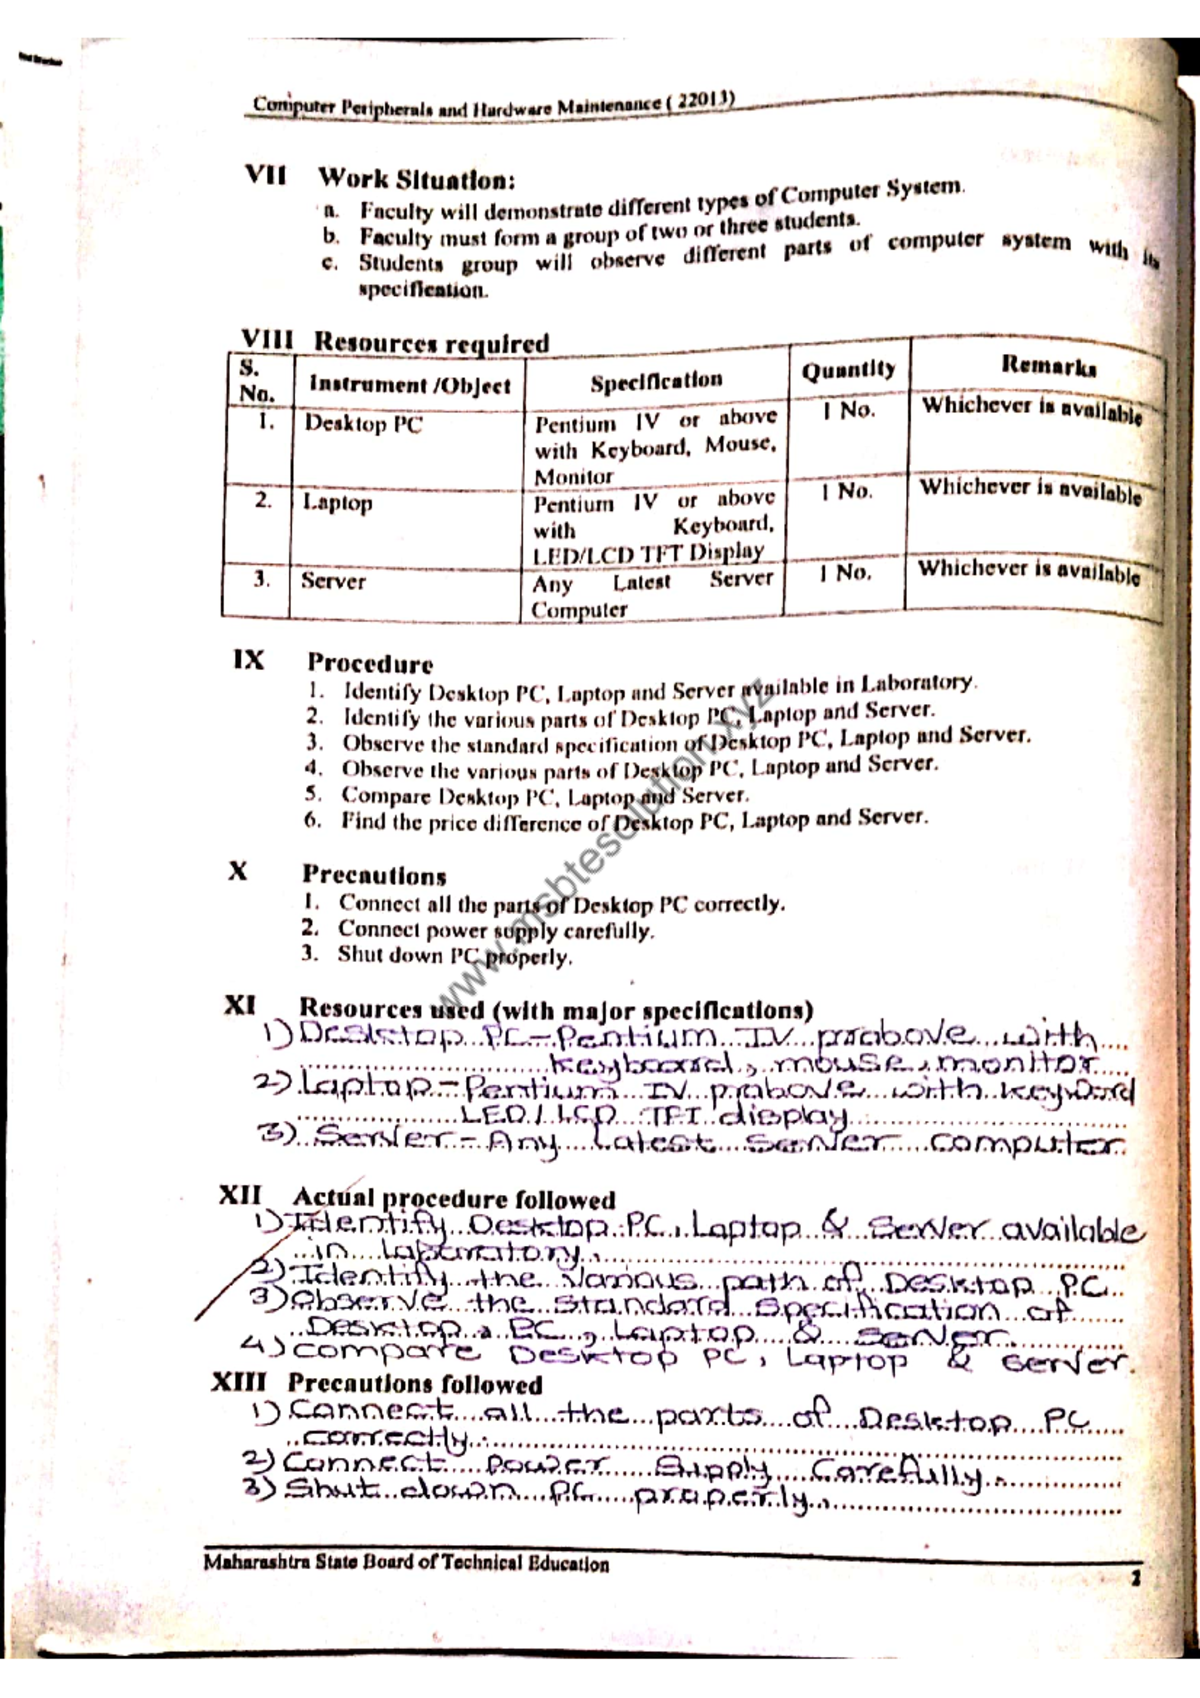 Computer Peripherals and Hardware Maintenance ( 22013)
VII Work Situation:
a. Faculty will demonstrate different types of Computer System.
b. Faculty must form a group of two or three students.
c. Students group will observe different parts of computer system with its
specification.
VIII Resources required
S. No. Instrument /Object Specification Quantity Remarks
1. Desktop PC Pentium IV or above 1 No. Whichever is available
with Keyboard, Mouse,
Monitor
2. Laptop Pentium IV or above 1 No. Whichever is available
with Keyboard,
LED/LCD TFT Display
3. Server Any Latest Server 1 No. Whichever is available
Computer
IX Procedure
1. Identify Desktop PC, Laptop and Server available in Laboratory.
2. Identify the various parts of Desktop PC, Laptop and Server.
3. Observe the standard specification of Desktop PC, Laptop and Server.
4. Observe the various parts of Desktop PC, Laptop and Server.
5. Compare Desktop PC, Laptop and Server.
6. Find the price difference of Desktop PC, Laptop and Server.
X Precautions
1. Connect all the parts of Desktop PC correctly.
2. Connect power supply carefully.
3. Shut down PC properly.
www.msbtesolution.xyz
XI Resources used (with major specifications)
1) Desktop PC - Pentium IV prabove with
keyboard, mouse, monitor
2) Laptop - Pentium IV prabove with keyword
LED/LCD TFT display
3) Server - Any Latest Server computer
XII Actual procedure followed
1) Identify Desktop PC, Laptop & Server available
in laboratory.
2) Identify the various path of Desktop PC
3) Observe the standard specification of
Desktop, PC, Laptop & Server.
4) compare Desktop PC, Laptop & server.
XIII Precautions followed
1) Connect all the parts of Desktop PC
correctly.
2) Connect power supply carefully.
3) Shut down PC properly.
Maharashtra State Board of Technical Education
2